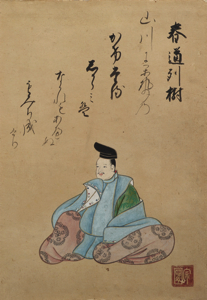 春道列樹
山川に風の
かけたる
しからみは
なかれもあへぬ
もみち成
けり